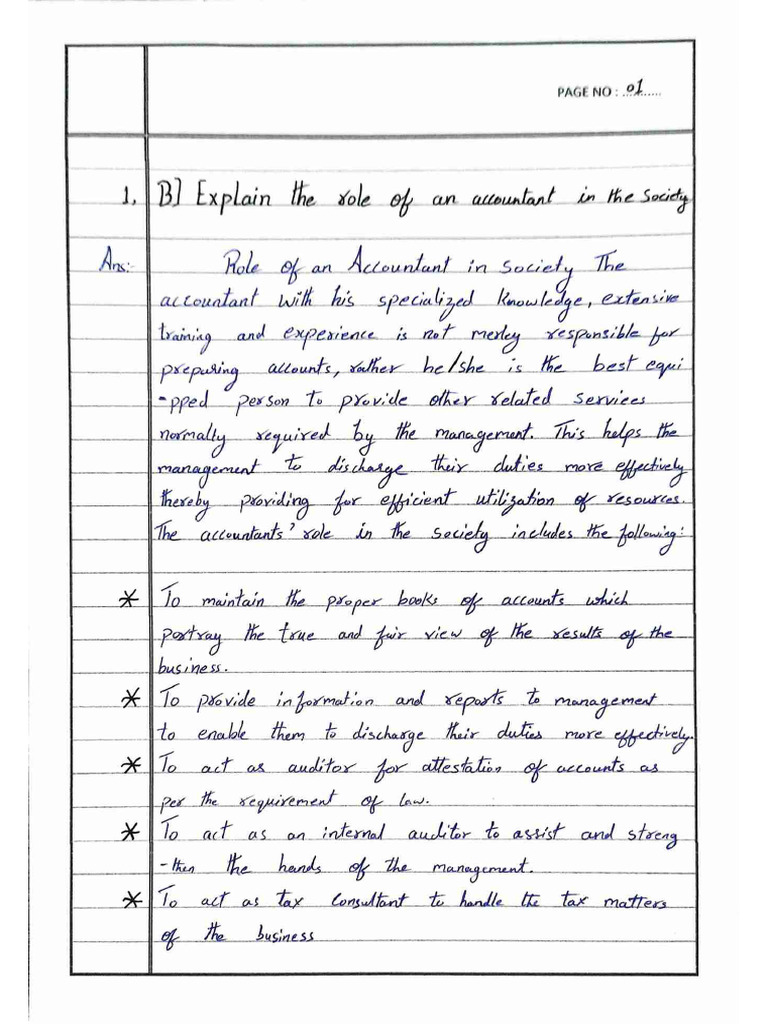 PAGE NO : 01
1. B] Explain the role of an accountant in the Society
Ans:- Role of an Accountant in society The
accountant with his specialized knowledge, extensive
training and experience is not merley responsible for
preparing accounts, rather he/she is the best equi
-pped person to provide other related services
normally required by the management. This helps the
management to discharge their duties more effectively
thereby providing for efficient utilization of resources.
The accountants' role in the society includes the following:
* To maintain the proper books of accounts which
portray the true and fair view of the results of the
business.
* To provide information and reports to management
to enable them to discharge their duties more effectively.
* To act as auditor for attestation of accounts as
per the requirement of law.
* To act as an internal auditor to assist and streng
-then the hands of the management.
* To act as tax consultant to handle the tax matters
of the business